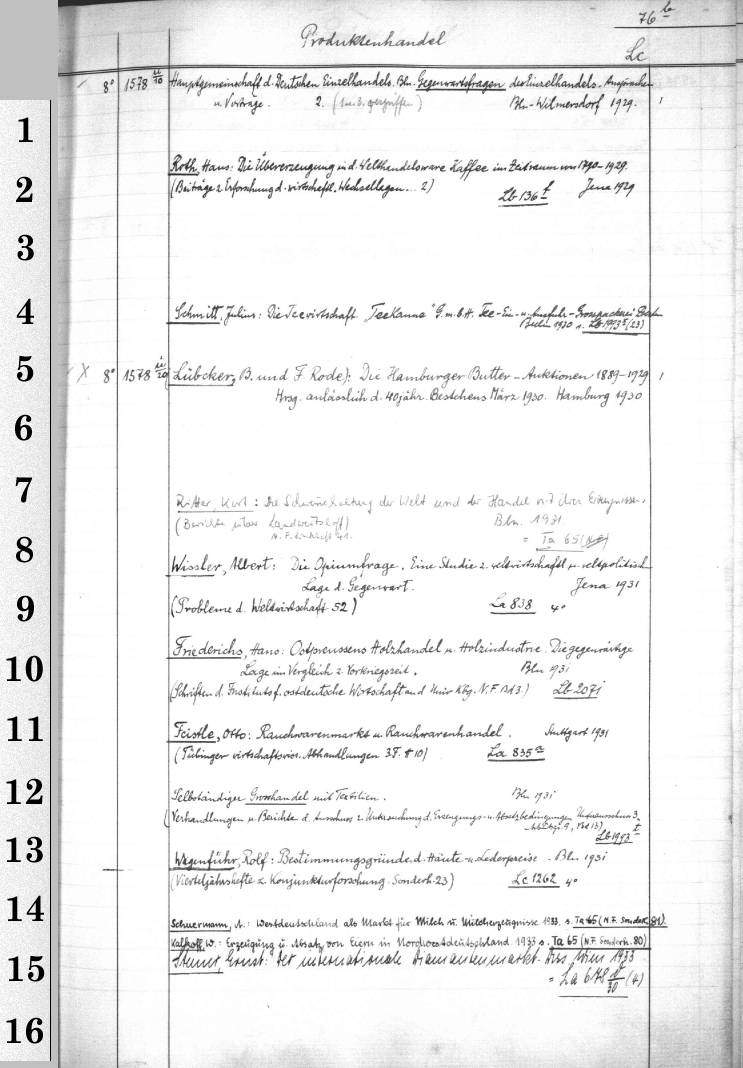 76 b
Produktenhandel
Lc
8° 1578 10 Hauptgemeinschaft d. Deutschen Einzelhandels. Bln. Gegenwartsfragen des Einzelhandels. Ansprachen
u. Vorträge. 2. (1 u. 3. vergriffen) Bln-Wilmersdorf 1929. 1
1
Roth, Hans: Die Übererzeugung in d. Welthandelsware Kaffee im Zeitraum von 1790-1929.
2 (Beiträge z. Erforschung d. wirtschaftl. Wechsellagen... 2) Lb 136 f Jena 1929
3
4 Schmitt, Julius: Die Teewirtschaft "Teekanne" G.m.b.H. Tee-Ein- u. Ausfuhr-Grosspackerei
Berlin 1930 s. Lb 1993 (23)
5 X 8° 1578 20 (Lübcker, B. und F. Rode): Die Hamburger Butter-Auktionen 1889-1929 1
Hrsg. anlässlich d. 40jähr. Bestehens März 1930. Hamburg 1930
6
7 Ritter, Kurt: Die Schweinehaltung der Welt und der Handel mit ihren Erzeugnissen.
(Berichte über Landwirtschaft) Bln. 1931
N.F. Sonderheft 41. = Ta 65 (N.F.)
8
Wissler, Albert: Die Opiumfrage. Eine Studie z. weltwirtschaftl. u. weltpolitisch.
Lage d. Gegenwart. Jena 1931
9 (Probleme d. Weltwirtschaft 52) La 838 4°
Friederichs, Hans: Ostpreussens Holzhandel u. Holzindustrie. Die gegenwärtige
10 Lage im Vergleich z. Vorkriegszeit. Bln 1931
(Schriften d. Instituts f. ostdeutsche Wirtschaft and Univ Kbg. N.F. Bd 3.) Lb 207i
11 Feistle, Otto: Rauchwarenmarkt u. Rauchwarenhandel. Stuttgart 1931
(Tübinger wirtschaftswiss. Abhandlungen 3 F. H 10) La 835 a
12 Selbständiger Grosshandel mit Textilien. Bln 1931
(Verhandlungen u. Berichte d. Ausschuss z. Untersuchung d. Erzeugungs- u. Absatzbedingungen Unterausschuss 3.
Arbeitsgr. 9, Bd 13) Lb 1993 t
13 Wagenführ, Rolf: Bestimmungsgründe d. Häute- u. Lederpreise. Bln 1931
(Vierteljahrshefte z. Konjunkturforschung. Sonderh. 23) Lc 1262 4°
14
Schuermann, A.: Westdeutschland als Markt für Milch u. Milcherzeugnisse 1933. s. Ta 65 (N.F. Sonderh. 81).
Kalthoff, W.: Erzeugung u. Absatz von Eiern in Nordwestdeutschland 1933 s. Ta 65 (N.F. Sonderh. 80)
15 Steiner, Ernst: Der internationale Diamantenmarkt. Diss. Wien 1933
= La 678 30 (4)
16